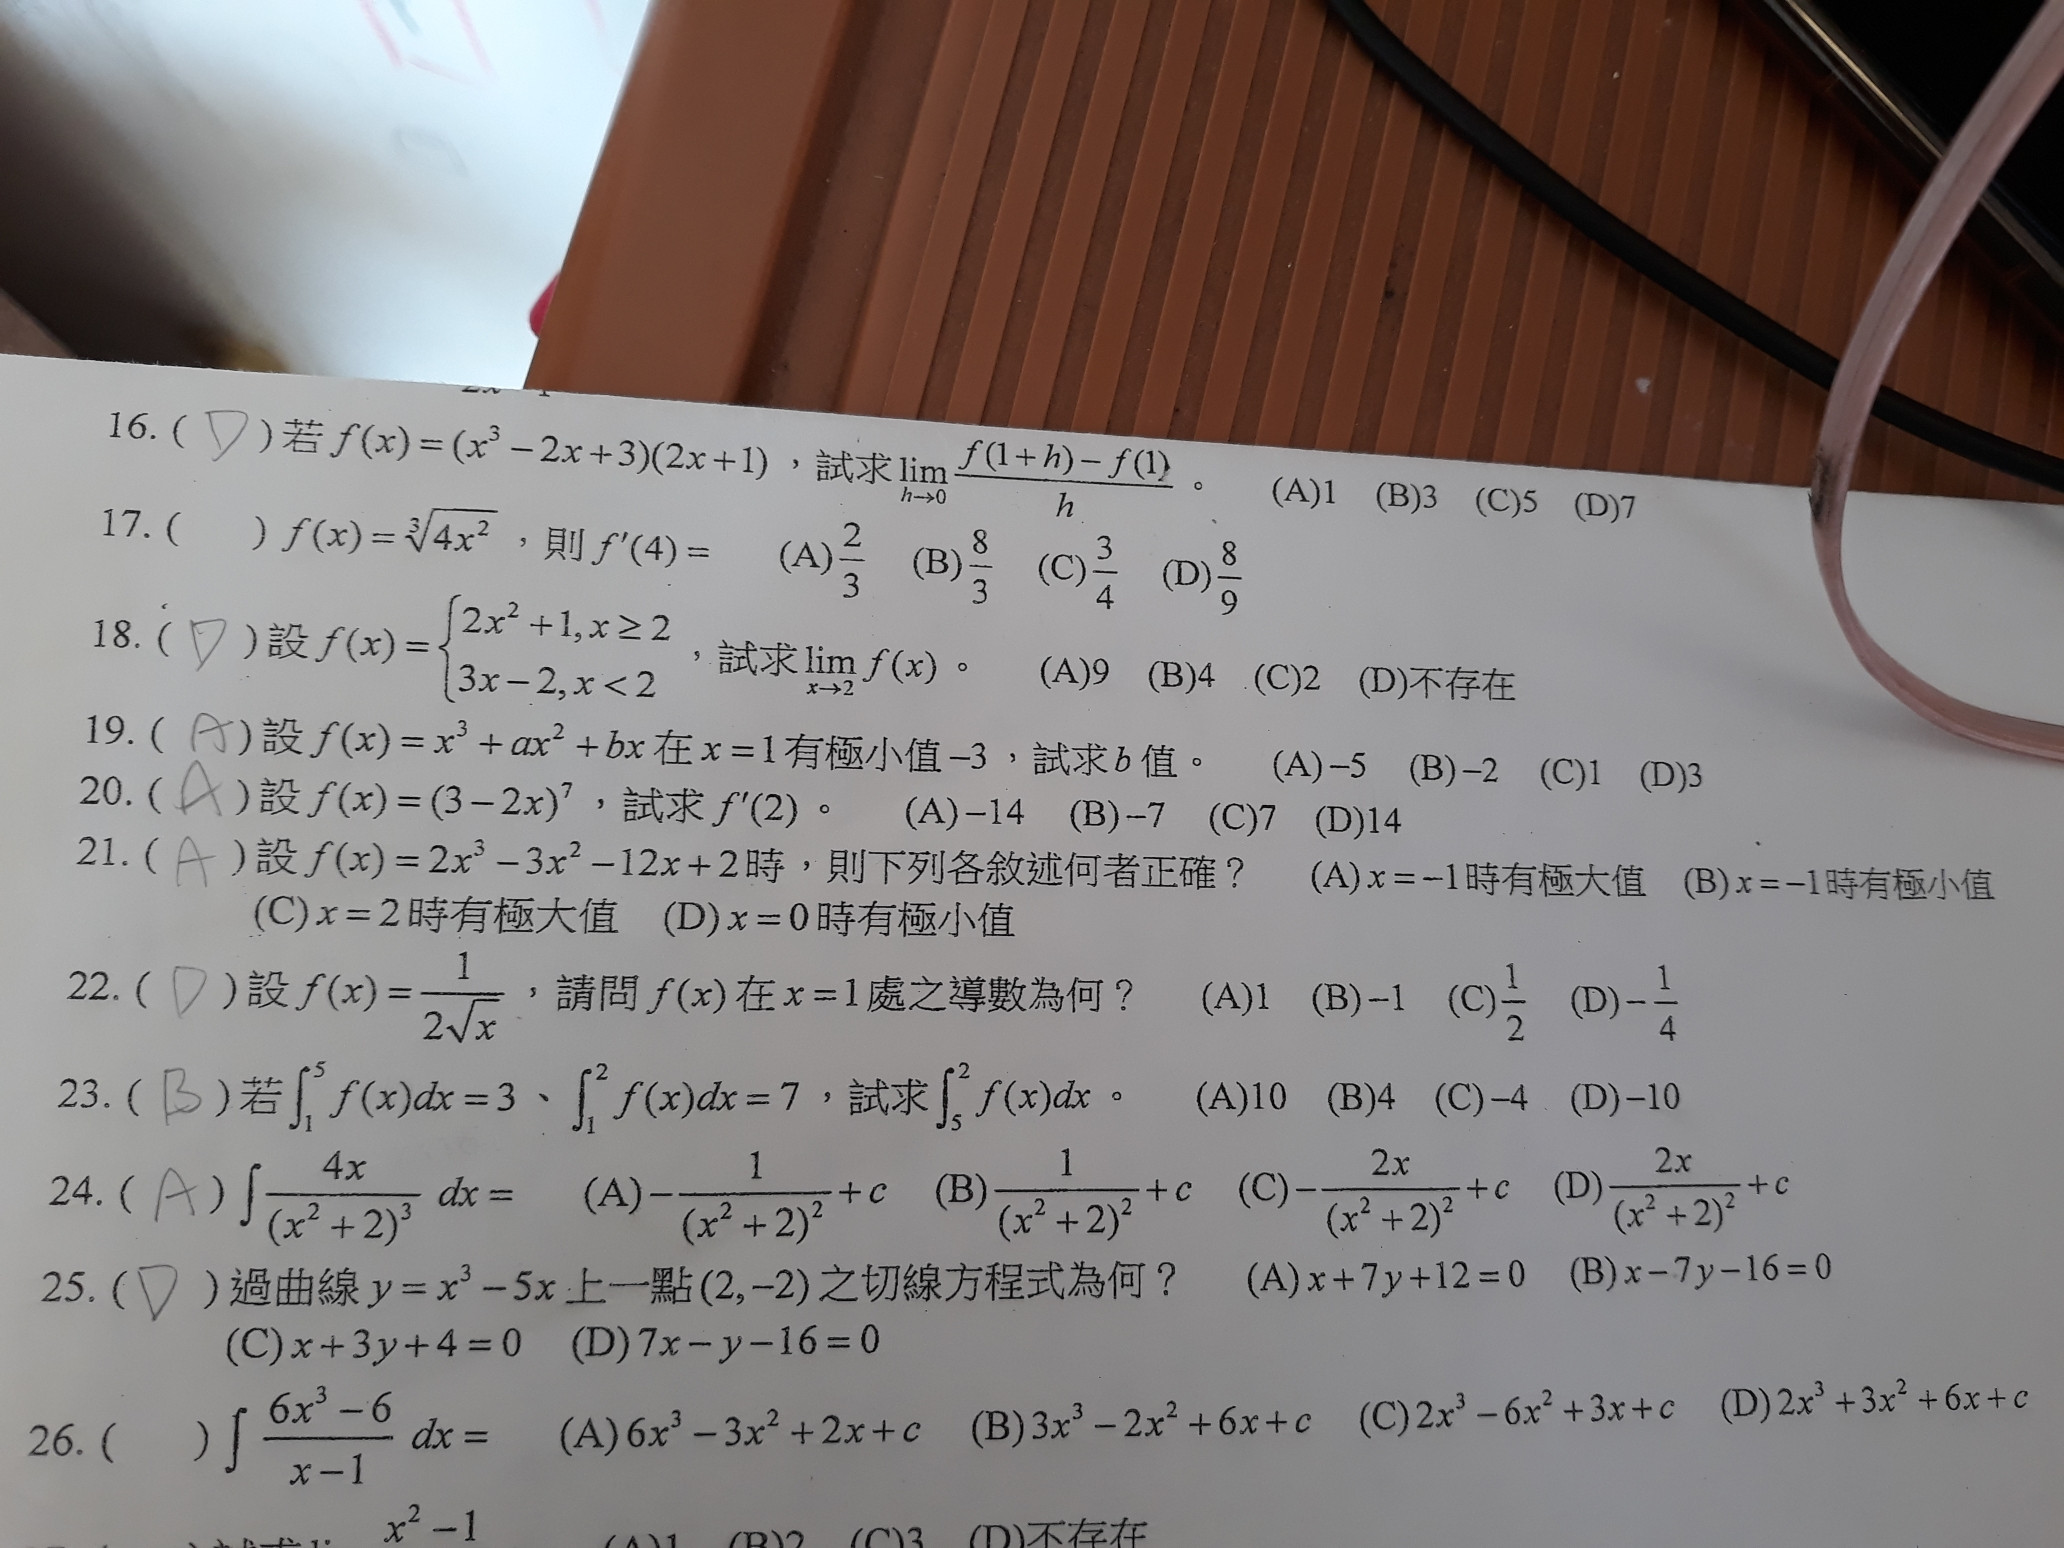 16. ( D ) 若 f(x) = (x³ − 2x + 3)(2x + 1)，試求 lim h→0 f(1+h) − f(1) / h 。 (A)1 (B)3 (C)5 (D)7
17. (    ) f(x) = ∛4x²，則 f′(4) = (A) 2/3 (B) 8/3 (C) 3/4 (D) 8/9
18. ( D ) 設 f(x) = { 2x² + 1, x ≥ 2
3x − 2, x < 2 ，試求 lim x→2 f(x) 。 (A)9 (B)4 (C)2 (D)不存在
19. ( A ) 設 f(x) = x³ + ax² + bx 在 x = 1 有極小值 −3，試求 b 值。 (A)−5 (B)−2 (C)1 (D)3
20. ( A ) 設 f(x) = (3 − 2x)⁷，試求 f′(2) 。 (A)−14 (B)−7 (C)7 (D)14
21. ( A ) 設 f(x) = 2x³ − 3x² − 12x + 2 時，則下列各敘述何者正確？ (A) x = −1 時有極大值 (B) x = −1 時有極小值
(C) x = 2 時有極大值 (D) x = 0 時有極小值
22. ( D ) 設 f(x) = 1/2√x ，請問 f(x) 在 x = 1 處之導數為何？ (A)1 (B)−1 (C) 1/2 (D) −1/4
23. ( B ) 若 ∫₁⁵ f(x)dx = 3、∫₁² f(x)dx = 7，試求 ∫₅² f(x)dx 。 (A)10 (B)4 (C)−4 (D)−10
24. ( A ) ∫ 4x/(x² + 2)³ dx = (A) −1/(x² + 2)² + c (B) 1/(x² + 2)² + c (C) −2x/(x² + 2)² + c (D) 2x/(x² + 2)² + c
25. ( D ) 過曲線 y = x³ − 5x 上一點 (2, −2) 之切線方程式為何？ (A) x + 7y + 12 = 0 (B) x − 7y − 16 = 0
(C) x + 3y + 4 = 0 (D) 7x − y − 16 = 0
26. (    ) ∫ 6x³ − 6 / x − 1 dx = (A) 6x³ − 3x² + 2x + c (B) 3x³ − 2x² + 6x + c (C) 2x³ − 6x² + 3x + c (D) 2x³ + 3x² + 6x + c
x² − 1 (A)1 (B)2 (C)3 (D)不存在